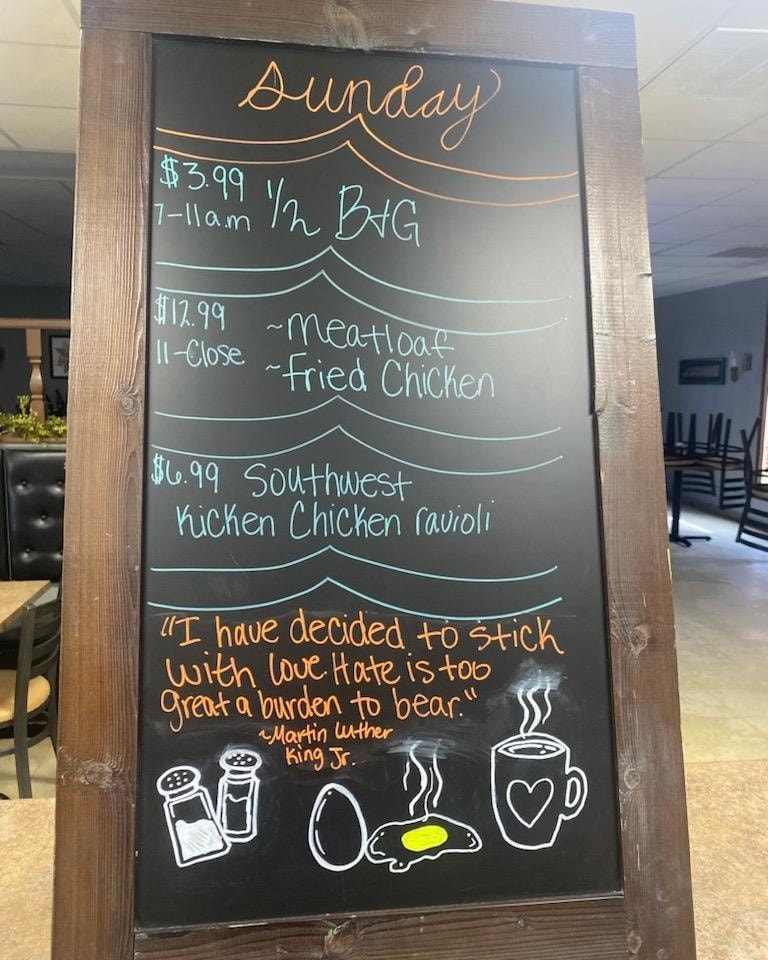 Sunday
$3.99 1/2 B+G
7-11am
$12.99 ~Meatloaf
11-Close ~Fried Chicken
$6.99 Southwest
Kicken Chicken ravioli
"I have decided to stick
with love. Hate is too
great a burden to bear."
~Martin Luther
King Jr.